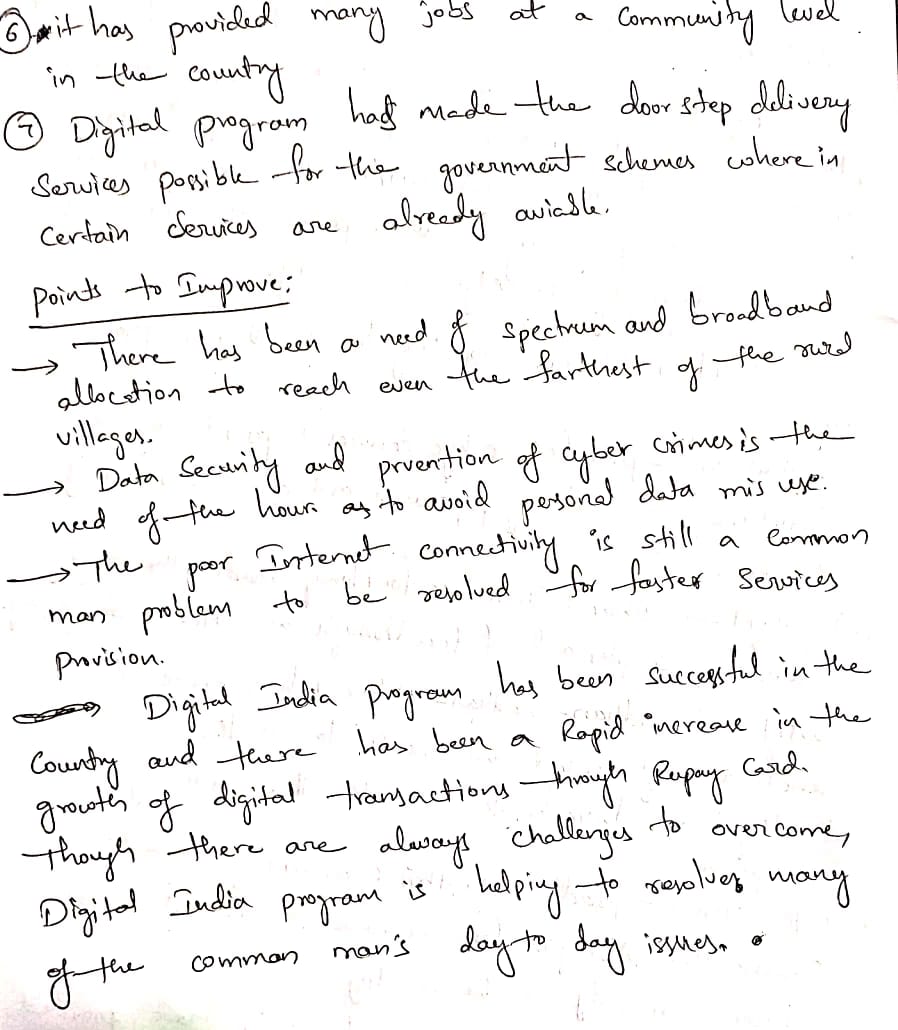 ⑥ it has provided many jobs at a Community level
in the country
⑦ Digital program has made the door step delivery
Services possible for the government schemes where in
Certain Services are already aviable.
Points to Improve:
→ There has been a need of spectrum and broadband
allocation to reach even the farthest of the rural
villages.
→ Data Security and prvention of cyber crimes is the
need of the hour as to avoid personal data mis use.
→ The poor Internet connectivity is still a Common
man problem to be resolved for faster Services
Provision.
Digital India Program has been successful in the
Country and there has been a Rapid increase in the
growth of digital transactions through Rupay Card.
Though there are always challenges to overcome,
Digital India program is helping to resolves many
of the common man's day to day issues.